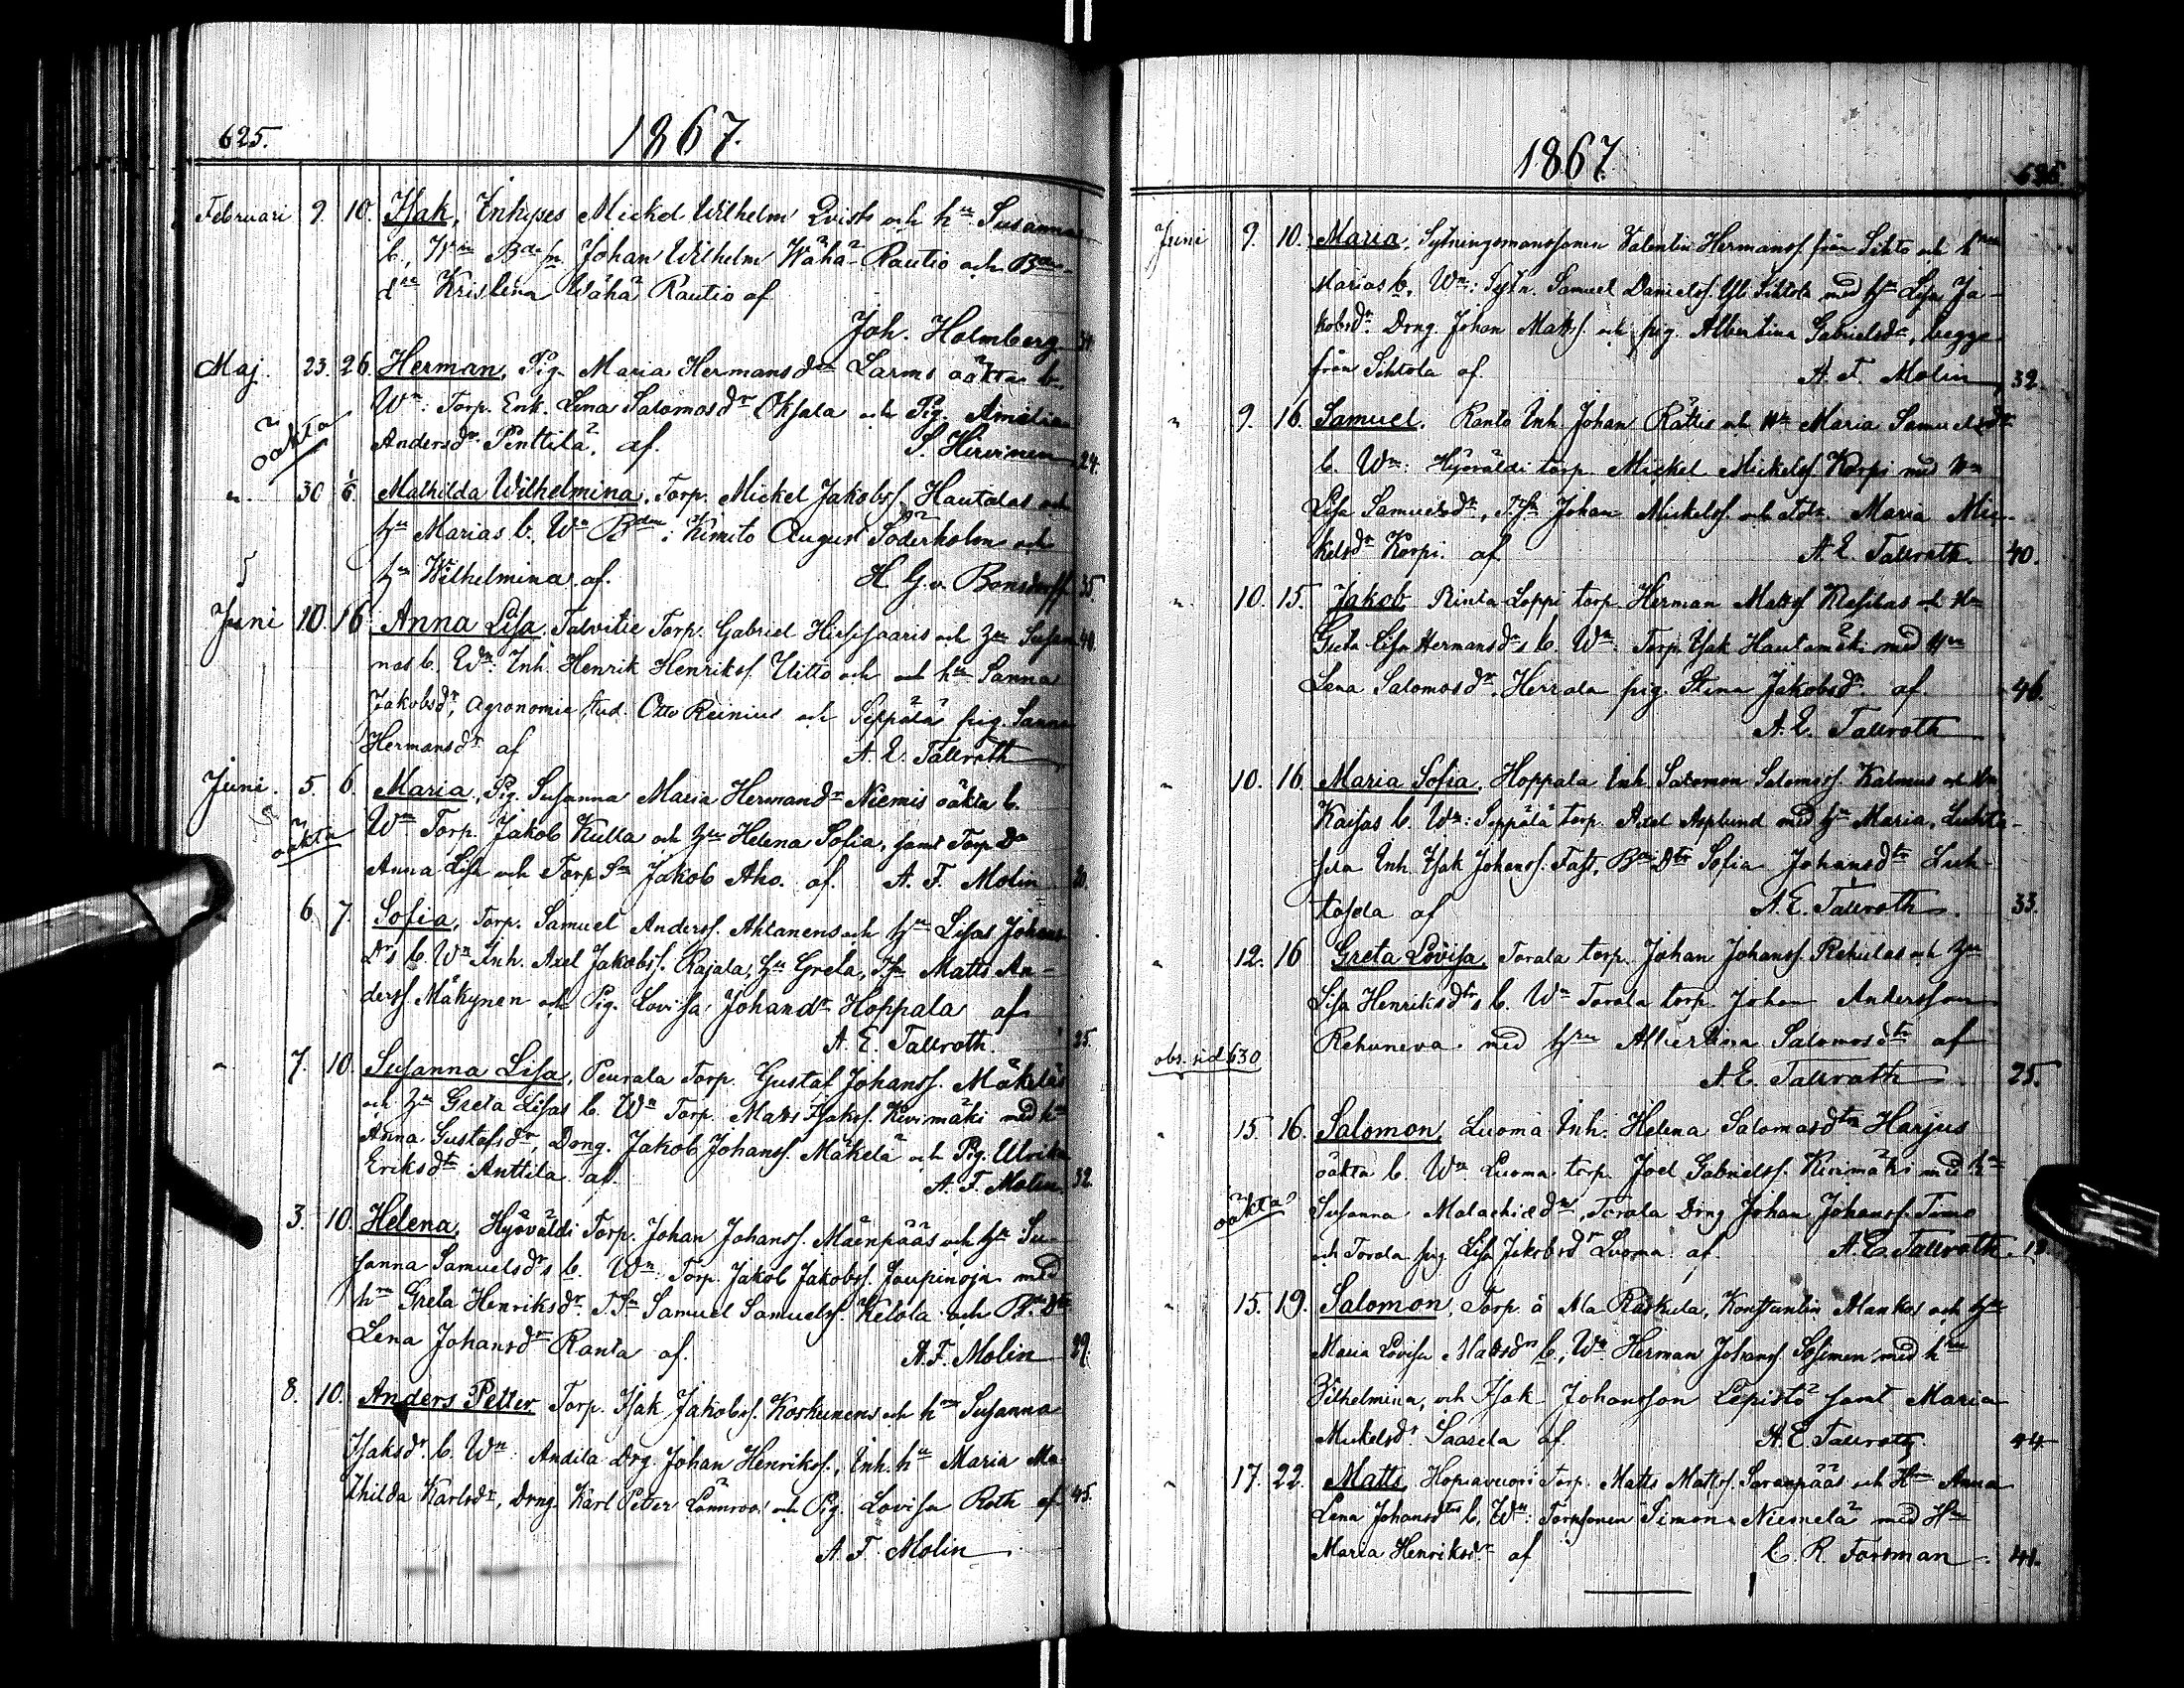 625.
1867.
Februari 9. 10. Isak, Inhyses Mickel Wilhelm Qvists och hu Susannas
b., Wn Bdesn. Johan Wilhelm Wähä-Rautio och Bde-
dr Kristina Wähä Rautio af
Joh. Holmberg 34.
Maj. 23. 26. Herman, Pig. Maria Hermansdr Larms oäkta b.
Wn: Torp. Enk. Lina Salomosdr Oksala och Pig. Amalia
oäkta Andersdr Penttilä, af. S. Hirvinen 24.
". 30 1/6. Mathilda Wilhelmina, Torp. Mickel Jakobss. Hautalas och
hu Marias b. Wn Bden i Kimito August Söderholm och
hu Wilhelmina af. H G. v. Bonsdorff 35.
Juni 10. 16. Anna Lisa, Talvitie Torp. Gabriel Hirssaaris och hu Susan- 40.
nas b. Wn: Inh. Henrik Henrikss. Uitto och hu Sanna
Jakobsdr, Agronomie stud. Otto Reinius och Seppälä pig. Sanna
Hermansdr af A. E. Tallroth
Juni. 5. 6. Maria, Pig. Susanna Maria Hermansdr Niemis oäkta b.
oäkta Wn Torp. Jakob Kulla och hu Helena Sofia, samt Torp Dr
Anna Lisa och Torp Sn Jakob Aho. af. A. F. Molin 20.
6. 7. Sofia, Torp. Samuel Anderss. Ahlanens och hu Lisas Johans
drs b. Wn Inh. Axel Jakobss. Rajala, hu Greta, T.sn Matts An-
derss. Mäkynen och Pig. Lovisa Johansdr Hoppala af
A. E. Tallroth. 25.
" 7. 10. Susanna Lisa, Peurala Torp. Gustaf Johanss. Mäkeläs
och hu Greta Lisas b. Wn Torp. Matts Isakss. Kivimäki med hu
Anna Gustafsdr, Dräng. Jakob Johanss. Mäkelä och Pig. Ulrika
Eriksdtr Anttila af. A. F. Molin. 32.
3. 10. Helena, Hyöväldi Torp. Johan Johanss. Mäenpääs och hu Su-
sanna Samuelsdrs b. Wn: Torp. Jakob Jakobss. Joupinoja med
hu Greta Henriksdr. T.Sn Samuel Samuelss. Ketola och Dr
Lena Johansdr Ranta af. A. F. Molin 29.
8. 10. Anders Petter Torp. Isak Jakobss. Koskinens och hu Susanna
Isaksdr. b. Wn: Andila Drg. Johan Henrikss., Inh. hu Maria Ma-
thilda Karlsdr, Dräng. Karl Petter Lönnroos och Pig. Lovisa Roth af 45.
A. F. Molin
1867.
625
Juni 9. 10. Maria, Sytningsmanssonen Valentin Hermanss. från Sikto och hus
Marias b. Wn: Sytn. Samuel Danielss. Yli Siktola med hu Lisa Ja-
kobsdr. Dräng. Johan Matts. och pig. Albertina Gabrielsdr, begge
från Siktola af. A. F. Molin 32.
" 9. 16. Samuel. Ranto Inh. Johan Rättis och Hu Maria Samuelsdr
b. Wn: Hyöväldi torp. Mickel Mickelss. Korpi med Hu
Lisa Samuelsdr, T.Sn Johan Mickelss. och Tdr. Maria Mic-
kelsdr Korpi. af A. E. Tallroth. 40.
". 10. 15. Jakob Rinta-Loppi torp. Herman Matts. och Hu
Greta Lisa Hermansdrs b. Wn: Torp. Isak Hautamäki med Hu
Lena Salomosdr. Herrala pig. Stina Jakobsdr. af. 46.
A. E. Tallroth
" 10. 16. Maria Sofia, Hoppala Inh. Salomon Salomoss. Kalmus och Hu
Kaisas b. Wn: Seppälä torp. Axel Asplund med hu Maria, Luhta-
sela Inh. Isak Johanss. Fast, Bde Dtr Sofia Johansdtr Luh-
tasela af A. E. Tallroth. 33.
" 12. 16 Greta Lovisa, Torala torp. Johan Johanss. Rehulas och hu
Lisa Henriksdtrs b. Wn Torala torp. Johan Andersson
Rehuneva. med hu Albertina Salomosdtr af
obs. sid 630
A. E. Tallroth 25.
" 15. 16. Salomon, Luoma Inh. Helena Salomosdtr Harjus
oäkta b. Wn. Luoma torp. Joel Gabrielss. Kivimäki med hu
oäkta Susanna Malachiedr, Torala Dräng Johan Johanss. Timo
och Torala pig Lisa Jakobsdr Luoma af. A. E. Tallroth. 18
" 15. 19. Salomon, Torp. å Ala Räskula, Konstantin Mankos och hu
Maria Lovisa Mattsdrs b, Wn. Herman Johanss. Sosimen med hu
Vilhelmina, och Isak Johansson Lepistö samt Maria
Mickelsdr. Saarela af A. E. Tallroth. 44
" 17. 22. Matts, Hopiavuori Torp. Matts Mattss. Soranpääs och Hu Anna
Lena Johansdtrs b. Wn: Torpsonen Simon Niemelä med Hu
Maria Henriksdr. af C. R. Forsman. 41.